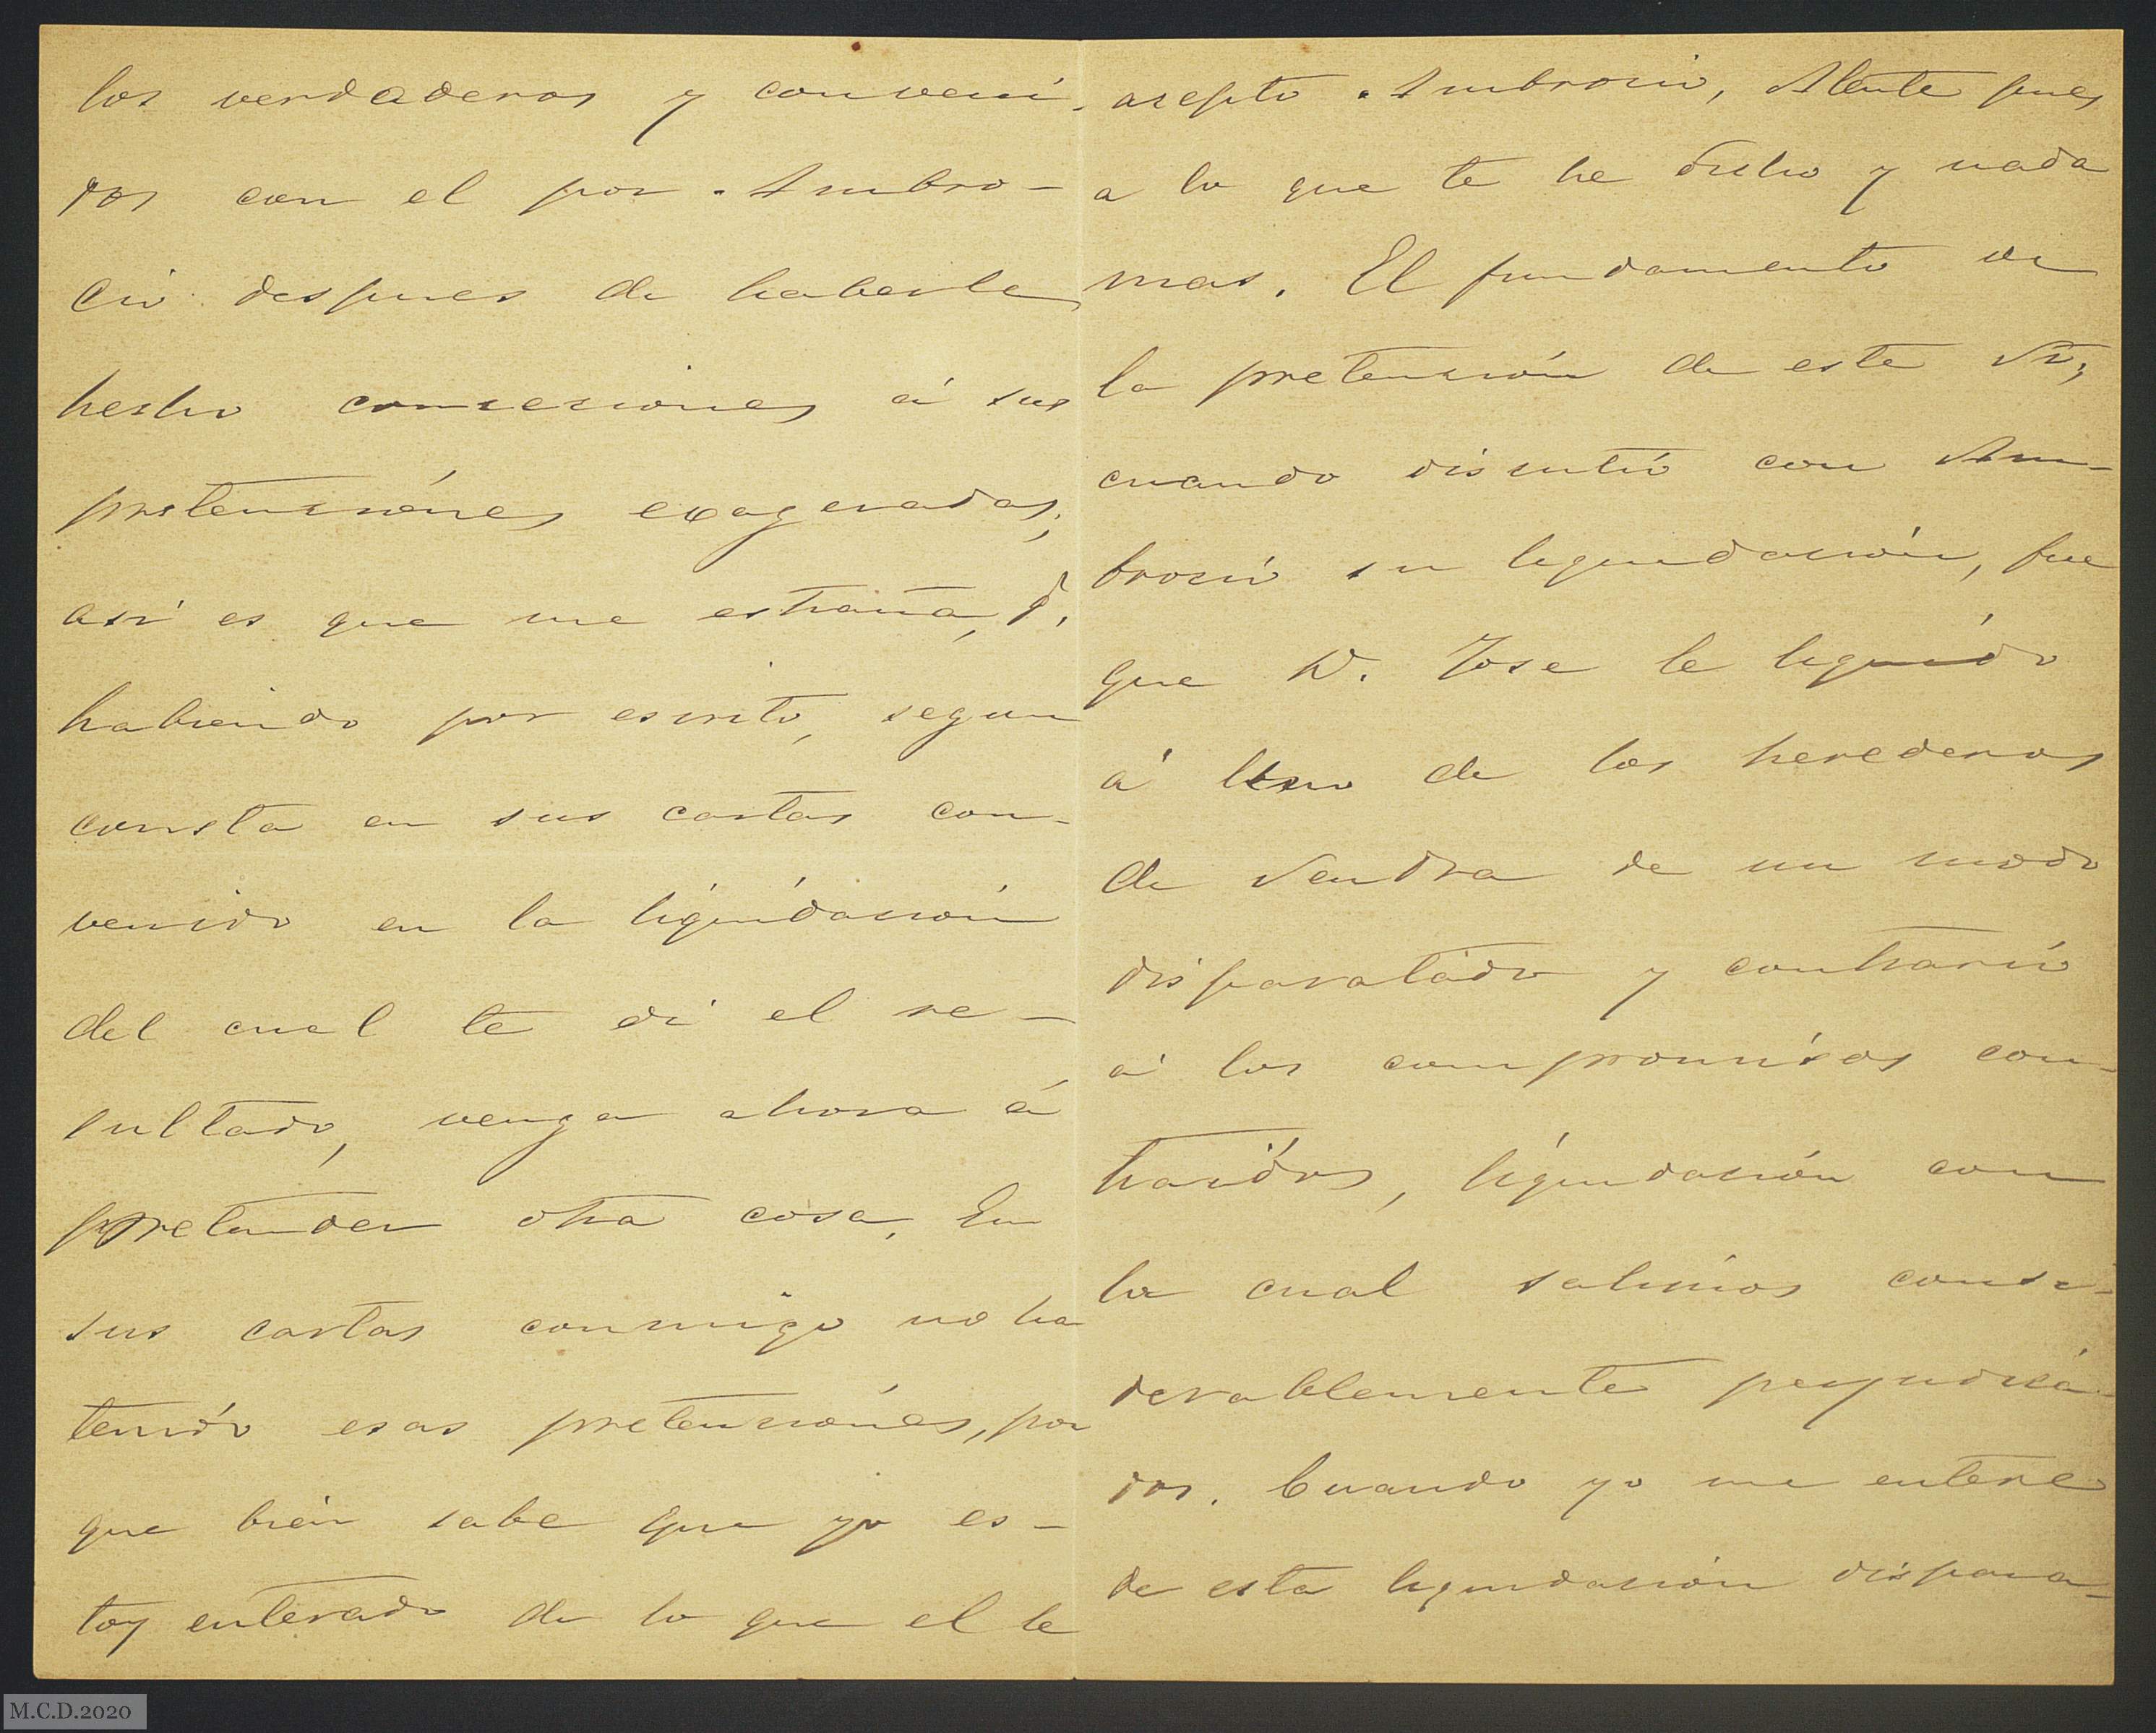 los verdaderos y conveni-
dos con el por Ambro-
cio despues de haberle
hecho concesiones á sus
pretensiónes exageradas;
asi es que me estraña, q.
habiendo por escrito, segun
consta en sus cartas con-
venido en la liquidación
del cual te di el re-
sultado, venga ahora á
pretender otra cosa. En
sus cartas conmigo no ha
tenido esas pretensiónes, por
que bien sabe que yo es-
toy enterado de lo que el le
acepto Ambrocio, Atente pues
a lo que te he dicho y nada
mas. El fundamento de
la pretensión de este Sr,
cuando discutió con Am-
brocio su liquidación, fue
que D. Jose le liquidó
á uno de los herederos
de Sendra de un modo
disparatado y contrario
á los compromisos con-
traidos, liquidación con
la cual salimos consi-
derablemente perjudica-
dos. Cuando yo me entere
de esta liquidación dispara-
M.C.D.2020